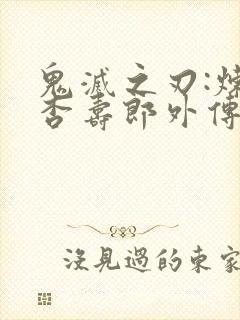 鬼滅之刃:煉
杏壽郎外傳
沒見過的東家